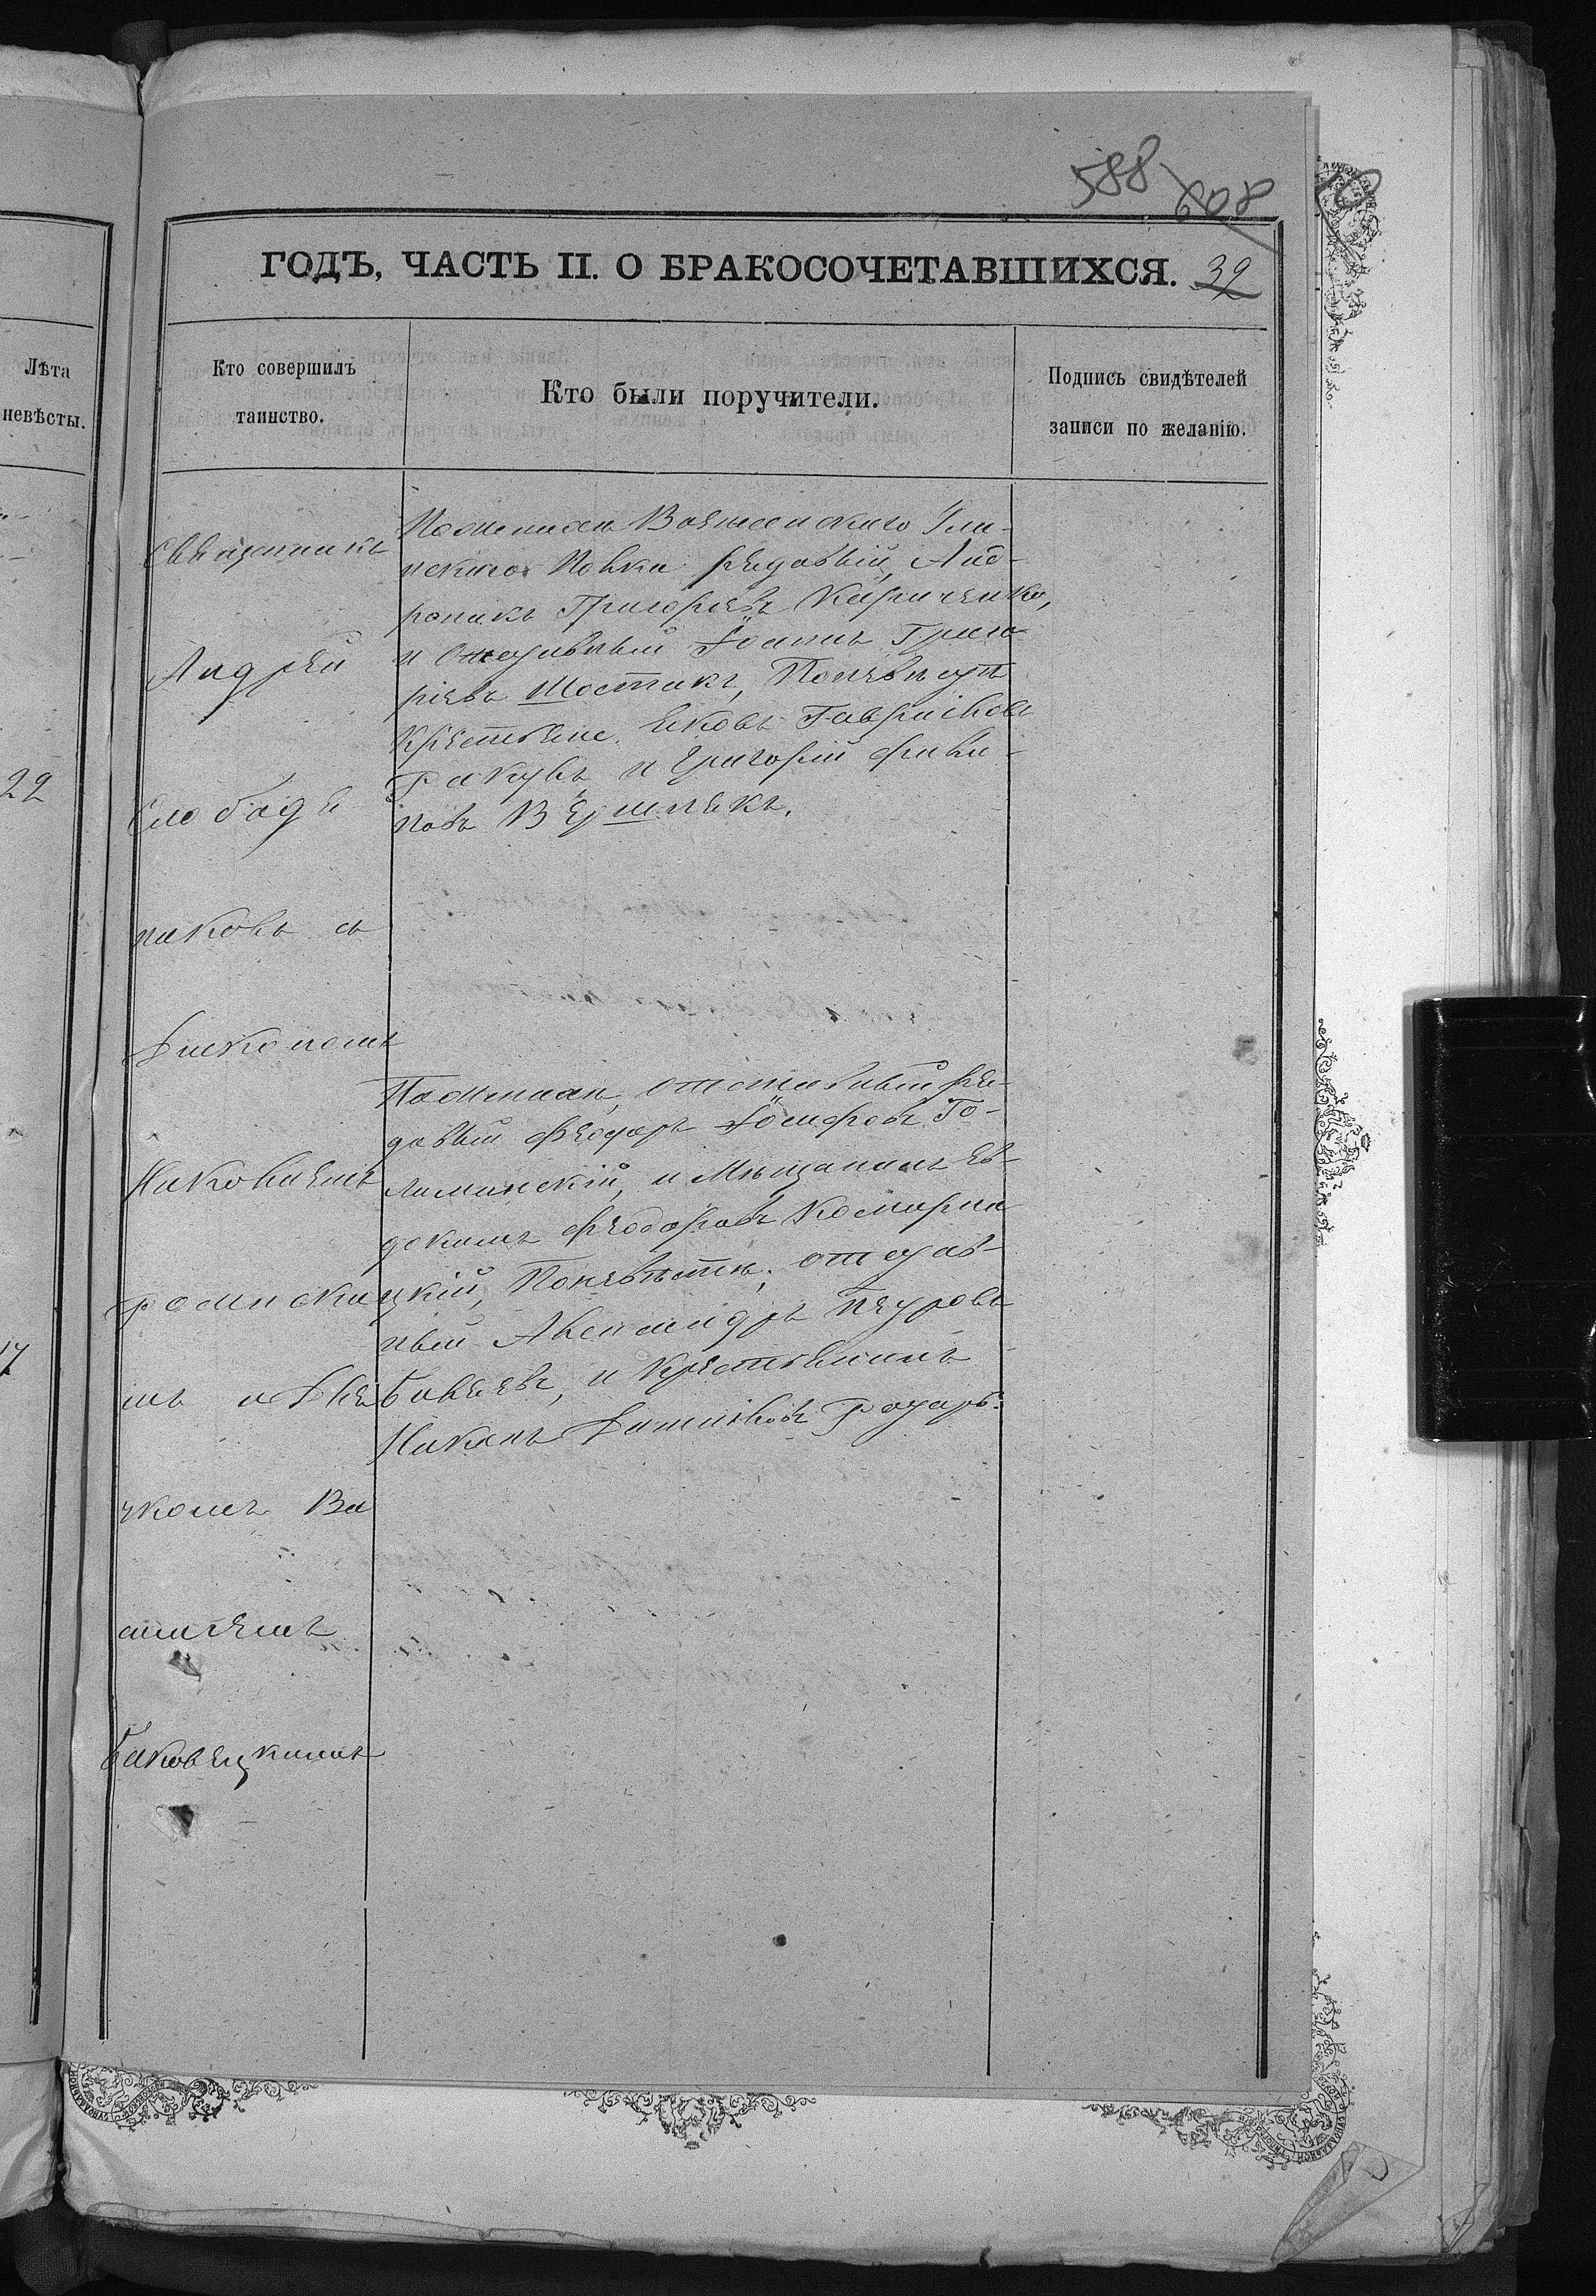 588
608
10
ГОДЪ, ЧАСТЬ II. О БРАКОСОЧЕТАВШИХСЯ. 32
Лѣта
невѣсты.
Кто совершилъ
таинство.
Кто были поручители.
Подпись свидѣтелей
записи по желанію.
22
17
Священникъ
Андрей
Слободе
никовъ съ
Дияко номъ
Николаемъ
ромъ и Дья
чкомъ Ва
силіемъ
баковецкимъ
По женихѣ Вознесенскаго Ула-
нскаго Полка рядовый, Анд-
роникъ Григорьевъ Кириченко,
и Отставный Іоаннъ Григо
ріевъ Шостакъ, По невѣстѣ
Крестьяне Яковъ Гавриіловъ
и Григорій Фили-
повъ
По женихѣ, отставный ря-
довый Феодоръ Іосифовъ Го-
ляминскій, и Мѣщанинъ Ев-
докимъ Феодоровъ Комарни
цкій, По невѣстѣ, отстав-
ный Александръ Петровъ
и Крестьянинъ
Никонъ